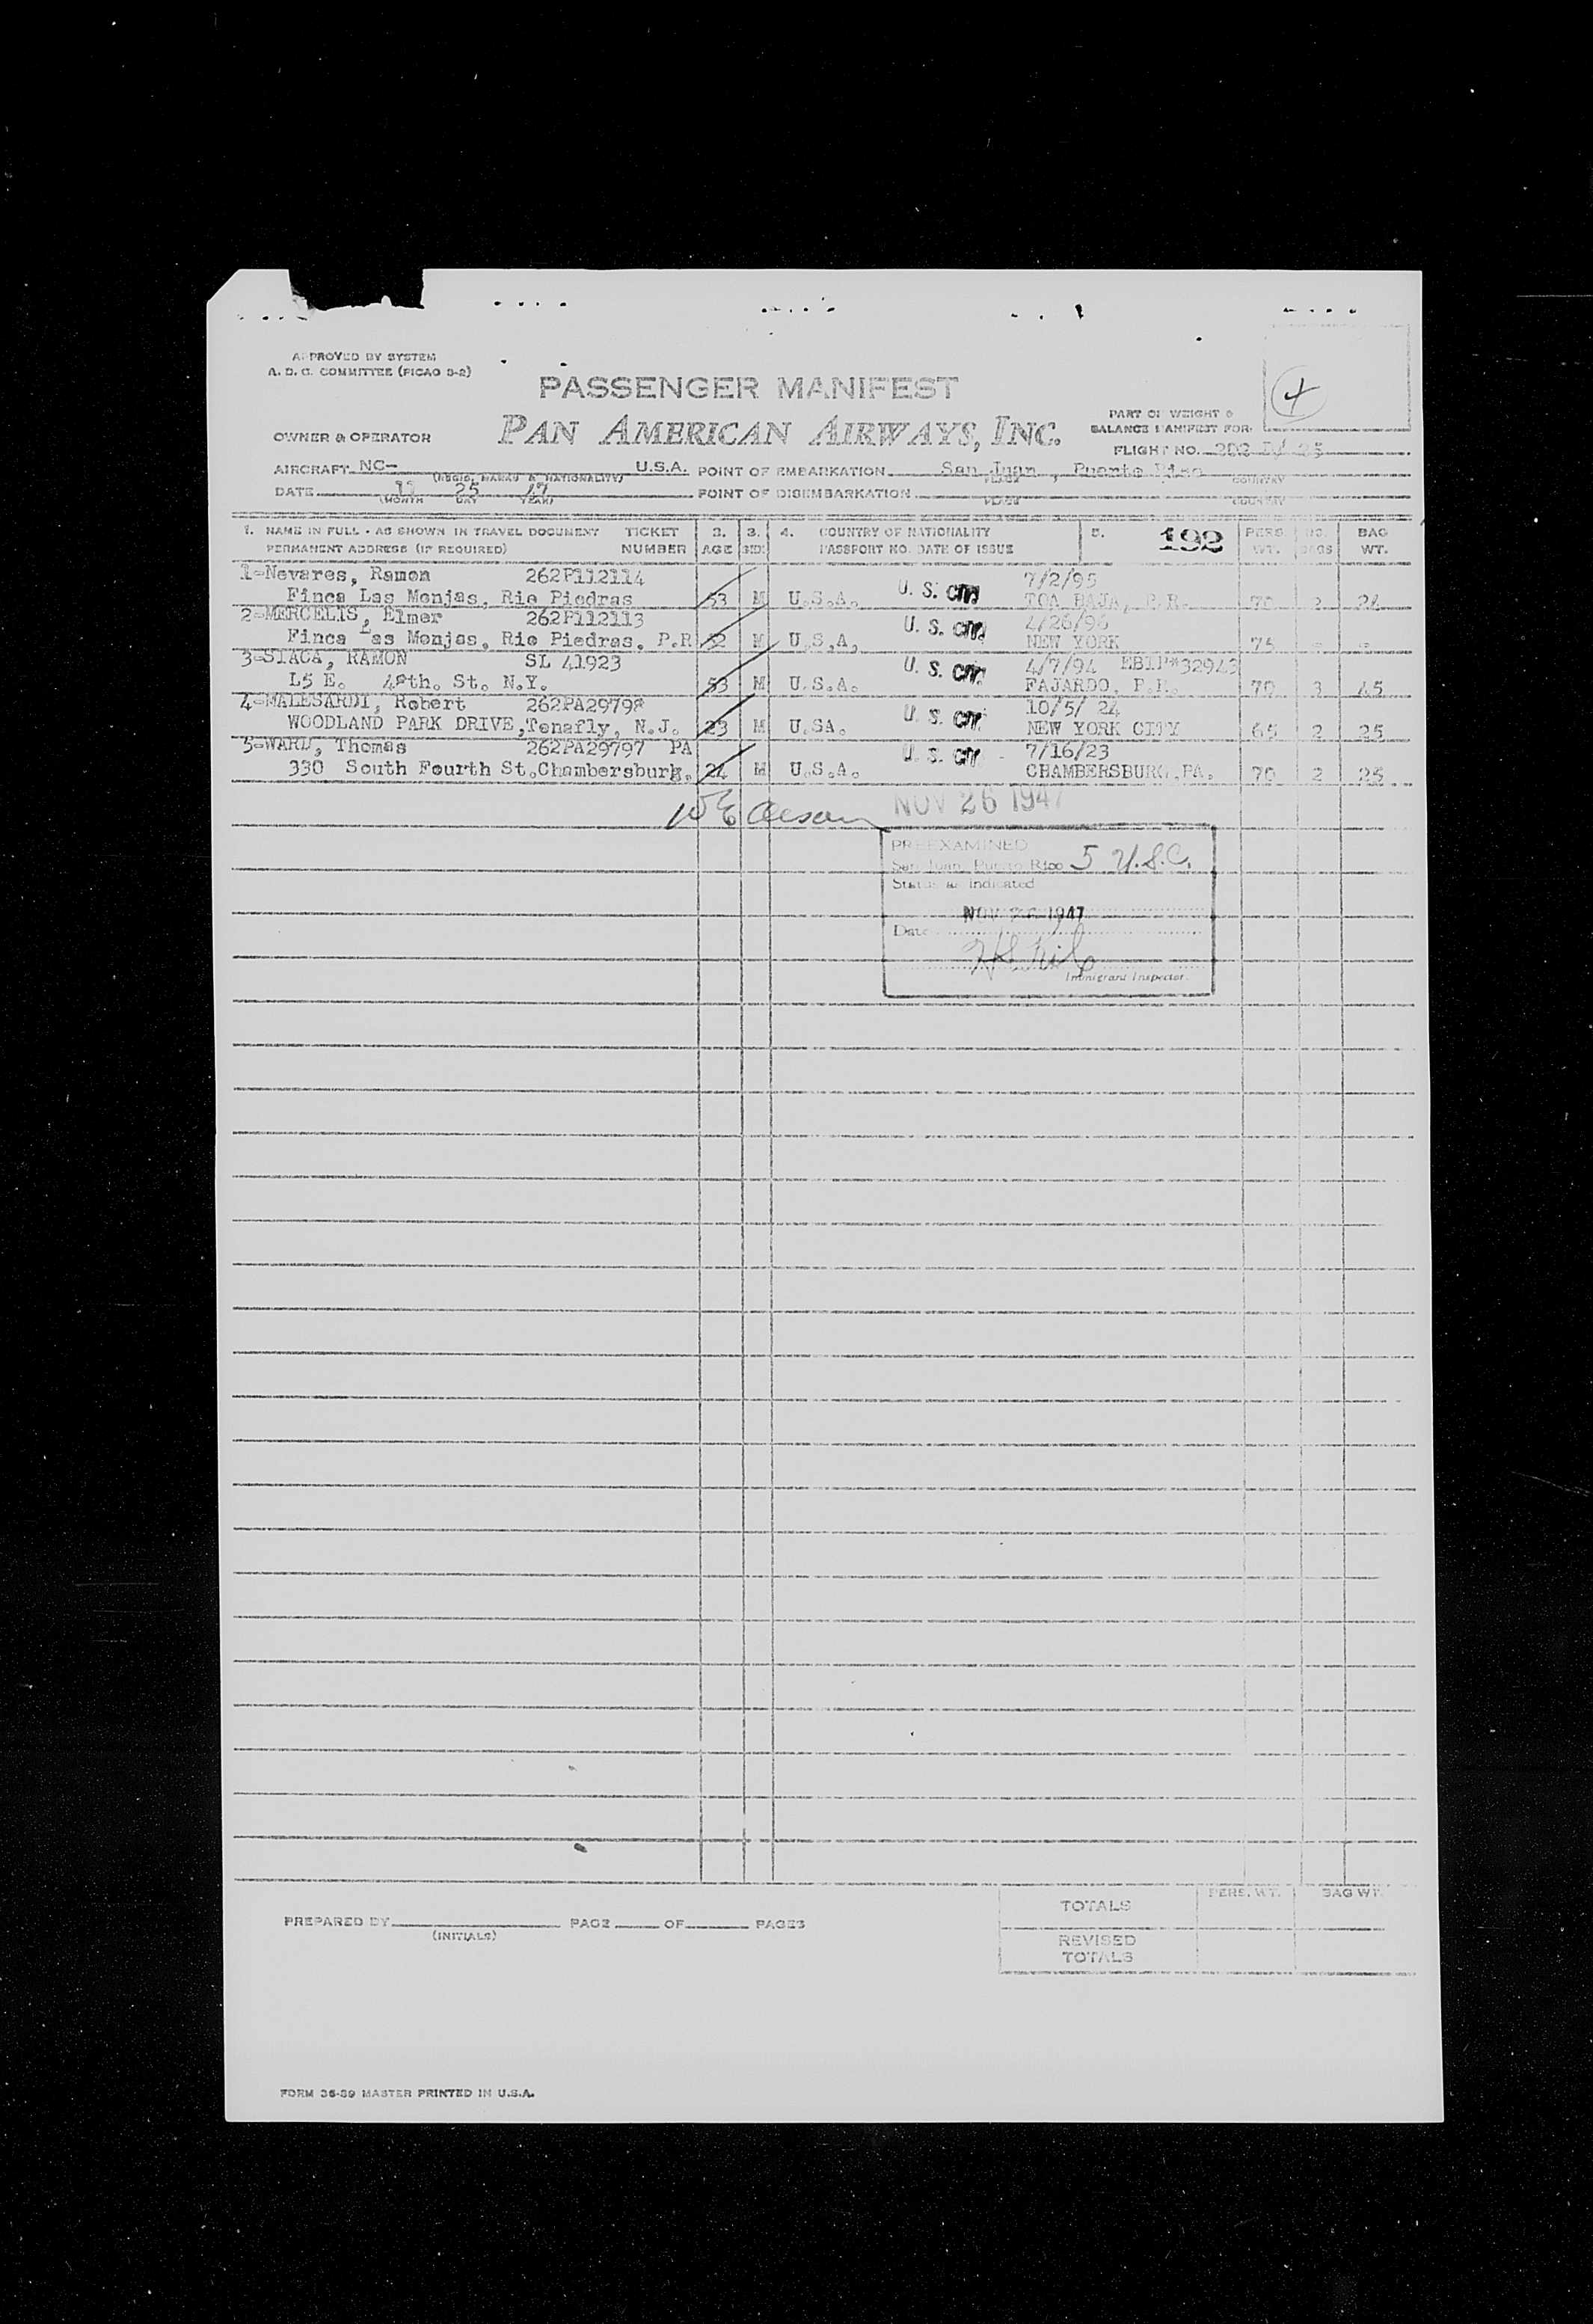 APPROVED BY SYSTEM
A. D. C. COMMITTEE (PICAO 3-2)
PASSENGER MANIFEST
PART OF WEIGHT &
BALANCE MANIFEST FOR:
OWNER & OPERATOR
PAN AMERICAN AIRWAYS, INC.
FLIGHT NO.
AIRCRAFT NC- U.S.A. POINT OF EMBARKATION San Juan, Puerto Rico
(REGIS. MARKS & NATIONALITY) PLACE COUNTRY
DATE 11 25 47 POINT OF DISEMBARKATION
(MONTH DAY YEAR) PLACE COUNTRY
1. NAME IN FULL - AS SHOWN IN TRAVEL DOCUMENT TICKET 2. 3. 4. COUNTRY OF NATIONALITY 5. 192 PERS. NO. BAG
PERMANENT ADDRESS (IF REQUIRED) NUMBER AGE SEX PASSPORT NO. DATE OF ISSUE WT. BAGS WT.
1-Nevares, Ramon 262P112114 7/2/95
Finca Las Monjas, Rio Piedras 53 M U.S.A. U. S. CTZ TOA BAJA, P.R. 70 2 24
2-MERCELIS, Elmer 262P112113 4/26/96
Finca Las Monjas, Rio Piedras, P.R 52 M U.S,A, U. S. CTZ NEW YORK 75 - -
3-SIACA, RAMON SL 41923 4/7/94 EBTP*32943
L5 E. 48th. St. N.Y. 53 M U.S.A. U. S. CTZ FAJARDO, P.R. 70 3 45
4-MALESARDI, Robert 262PA29798 10/5/ 24
WOODLAND PARK DRIVE,Tenafly, N.J. 23 M U.SA. U. S. CTZ NEW YORK CITY 65 2 25
5-WARD, Thomas 262PA29797 PA 7/16/23
330 South Fourth St.Chambersburg. 24 M U.S.A. U. S. CTZ CHAMBERSBURG,PA. 70 2 25
NOV 26 1947
PREEXAMINED
San Juan, Puerto Rico 5 U.S.C.
Status as Indicated
NOV 26 1947
Date
Immigrant Inspector.
TOTALS PERS. WT. BAG WT.
PREPARED BY PAGE OF PAGES
(INITIALS)
REVISED
TOTALS
FORM 36-39 MASTER PRINTED IN U.S.A.